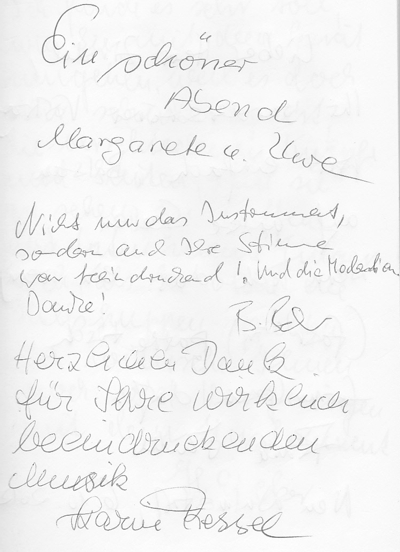 Ein schöner
Abend
Margarete u. Uwe
Nicht nur das Instrument,
sondern auch Ihre Stimme
war beeindruckend! Und die Moderation
Danke!
Herzlichen Dank
für Ihre wirklich
beeindruckenden
Musik